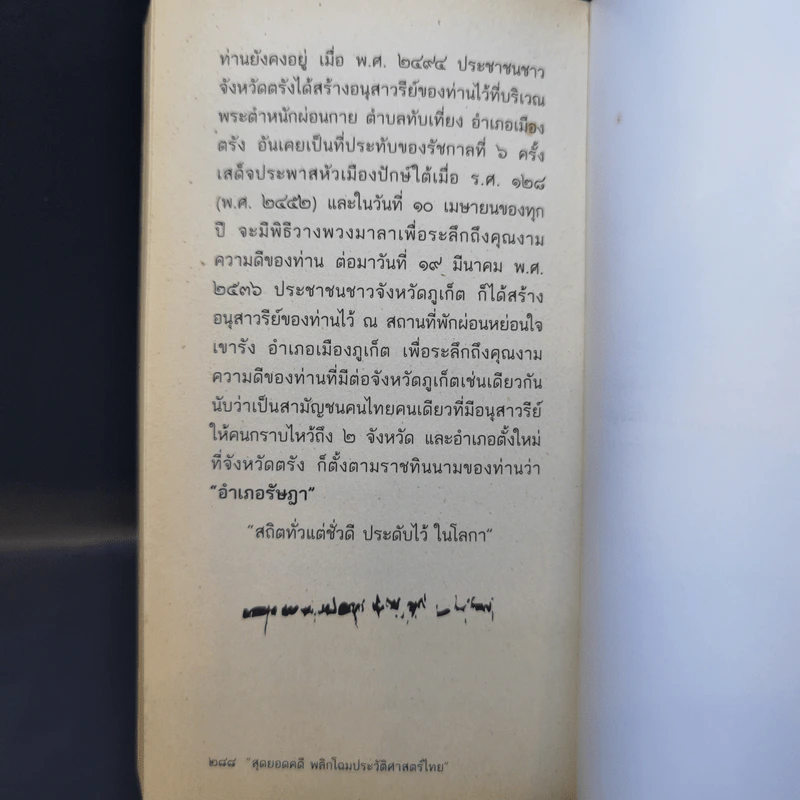 ท่านยังคงอยู่ เมื่อ พ.ศ. ๒๔๙๔ ประชาชนชาว
จังหวัดตรังได้สร้างอนุสาวรีย์ของท่านไว้ที่บริเวณ
พระตำหนักผ่อนกาย ตำบลทับเที่ยง อำเภอเมือง
ตรัง อันเคยเป็นที่ประทับของรัชกาลที่ ๖ ครั้ง
เสด็จประพาสหัวเมืองปักษ์ใต้เมื่อ ร.ศ. ๑๒๘
(พ.ศ. ๒๔๕๒) และในวันที่ ๑๐ เมษายนของทุก
ปี จะมีพิธีวางพวงมาลาเพื่อระลึกถึงคุณงาม
ความดีของท่าน ต่อมาวันที่ ๑๙ มีนาคม พ.ศ.
๒๕๓๖ ประชาชนชาวจังหวัดภูเก็ต ก็ได้สร้าง
อนุสาวรีย์ของท่านไว้ ณ สถานที่พักผ่อนหย่อนใจ
เขารัง อำเภอเมืองภูเก็ต เพื่อระลึกถึงคุณงาม
ความดีของท่านที่มีต่อจังหวัดภูเก็ตเช่นเดียวกัน
นับว่าเป็นสามัญชนคนไทยคนเดียวที่มีอนุสาวรีย์
ให้คนกราบไหว้ถึง ๒ จังหวัด และอำเภอตั้งใหม่
ที่จังหวัดตรัง ก็ตั้งตามราชทินนามของท่านว่า
"อำเภอรัษฎา"
"สถิตทั่วแต่ชั่วดี ประดับไว้ ในโลกา"
๒๘๘ "สุดยอดคดี พลิกโฉมประวัติศาสตร์ไทย"